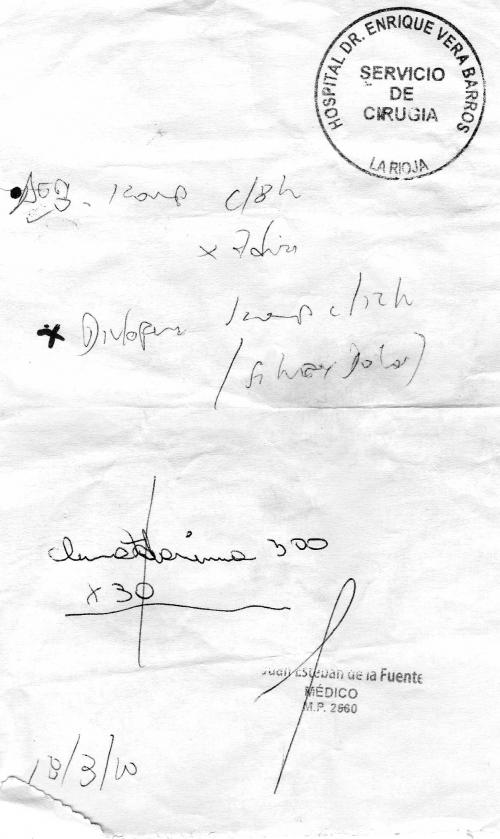 HOSPITAL DR. ENRIQUE VERA BARROS
SERVICIO
DE
CIRUGIA
LA RIOJA
1 comp c/8h
x 7 días
1 comp c/12h
(si hay Dolor)
300
x 30
Juan Esteban de la Fuente
MÉDICO
M.P. 2660
18/3/10